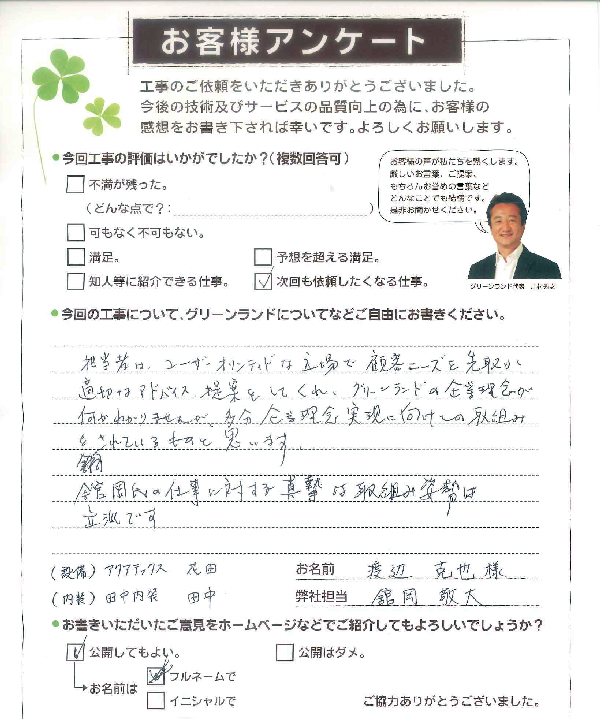 お客様アンケート
工事のご依頼をいただきありがとうございました。
今後の技術及びサービスの品質向上の為に、お客様の
感想をお書き下されば幸いです。よろしくお願いします。
今回工事の評価はいかがでしたか？(複数回答可)
不満が残った。
(どんな点で？: )
可もなく不可もない。
満足。 予想を超える満足。
知人等に紹介できる仕事。 次回も依頼したくなる仕事。
お客様の声が私たちを熱くします。
厳しいお言葉、ご提案、
もちろんお誉めの言葉など
どんなことでも結構です。
是非お聞かせください。
グリーンランド代表
今回の工事について、グリーンランドについてなどご自由にお書きください。
担当者は、ユーザーオリンティドな立場で顧客ニーズを先取り
適切なアドバイス、提案をしてくれ、グリーンランドの企営理念が
何かわかりませんが、多分企営理念実現に向けての取組み
をされているものと思います。
舘岡氏の仕事に対する真摯な取組み姿勢は
立派です
(設備) アクアテックス 花田 お名前 渡辺 克也 様
(内装) 田中内装 田中 弊社担当 舘岡 敬太
お書きいただいたご意見をホームページなどでご紹介してもよろしいでしょうか？
公開してもよい。 公開はダメ。
お名前は フルネームで
イニシャルで
ご協力ありがとうございました。